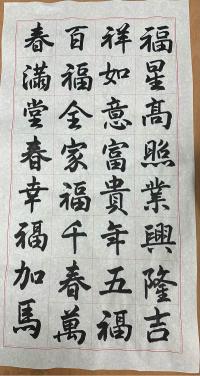 福星高照業興隆吉
祥如意富貴年五福
百福全家福千春萬
春滿堂春幸福加馬